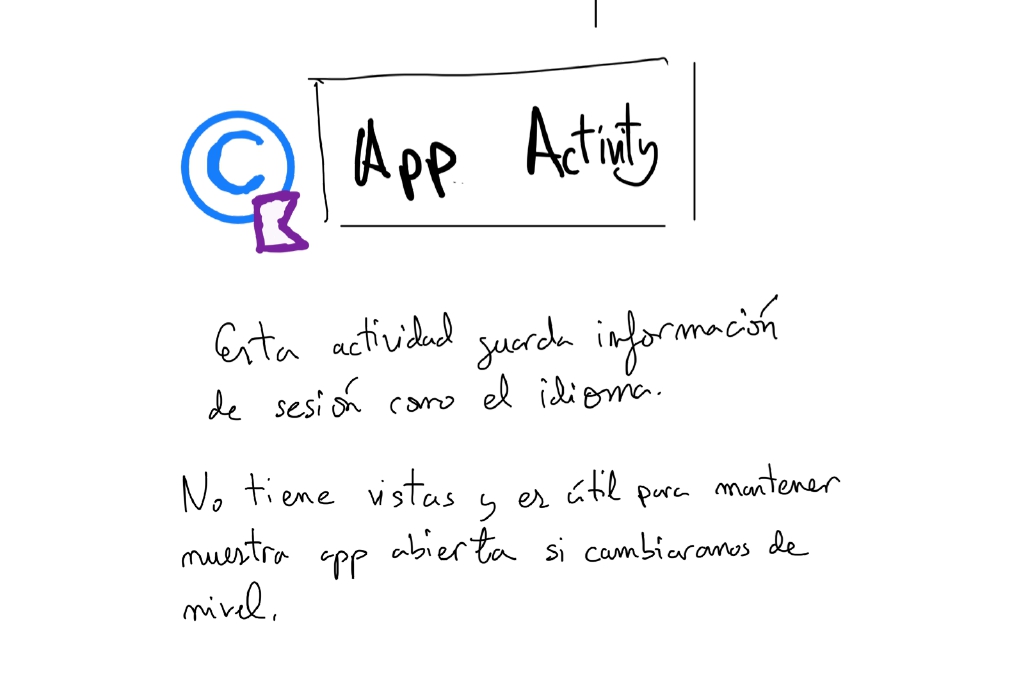 C
App Activity
Esta actividad guarda información
de sesión como el idioma.
No tiene vistas y es útil para mantener
nuestra app abierta si cambiaramos de
nivel.